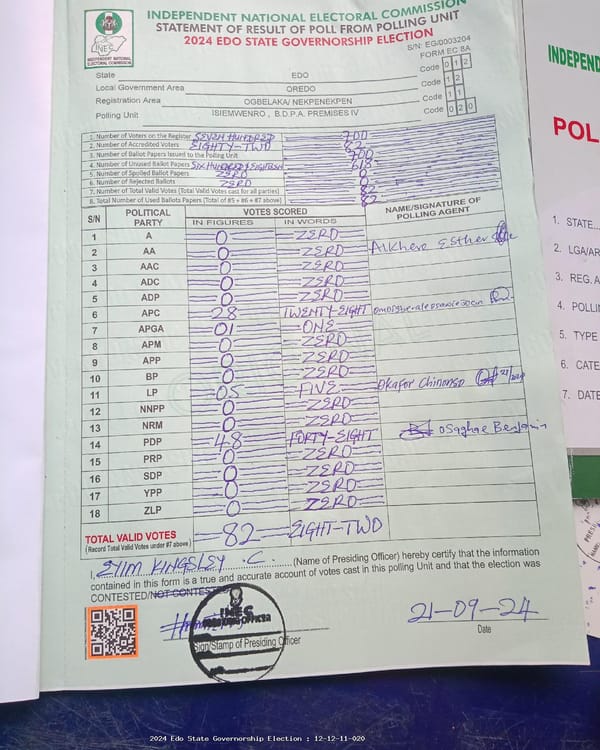 INDEPENDENT NATIONAL ELECTORAL COMMISSION
STATEMENT OF RESULT OF POLL FROM POLLING UNIT
2024 EDO STATE GOVERNORSHIP ELECTION
S/N: EG/0003204
FORM EC 8A
INEC
INDEPENDENT NATIONAL ELECTORAL COMMISSION
State EDO Code 0 1 2
Local Government Area OREDO Code 1 2
Registration Area OGBELAKA/ NEKPENEKPEN Code 1 1
Polling Unit ISIEMWENRO , B.D.P.A. PREMISES IV Code 0 2 0
1. Number of Voters on the Register SEVEN HUNDRED 700
2. Number of Accredited Voters EIGHTY-TWO 82
3. Number of Ballot Papers Issued to the Polling Unit 700
4. Number of Unused Ballot Papers SIX HUNDRED & EIGHTEEN 618
5. Number of Spoiled Ballot Papers ZERO 0
6. Number of Rejected Ballots ZERO 0
7. Number of Total Valid Votes (Total Valid Votes cast for all parties) 82
8. Total Number of Used Ballots Papers (Total of #5 + #6 + #7 above) 82
S/N POLITICAL PARTY VOTES SCORED NAME/SIGNATURE OF POLLING AGENT
IN FIGURES IN WORDS
1 A 0 ZERO
2 AA 0 ZERO Esther
3 AAC 0 ZERO
4 ADC 0 ZERO
5 ADP 0 ZERO
6 APC 28 TWENTY-EIGHT
7 APGA 01 ONE
8 APM 0 ZERO
9 APP 0 ZERO
10 BP 0 ZERO
11 LP 05 FIVE Okafor Chinonso
12 NNPP 0 ZERO
13 NRM 0 ZERO
14 PDP 48 FORTY-EIGHT Osaghae Benjamin
15 PRP 0 ZERO
16 SDP 0 ZERO
17 YPP 0 ZERO
18 ZLP 0 ZERO
TOTAL VALID VOTES 82 EIGHT-TWO
(Record Total Valid Votes under #7 above)
I, KINGSLEY .C. (Name of Presiding Officer) hereby certify that the information
contained in this form is a true and accurate account of votes cast in this polling Unit and that the election was
CONTESTED/NOT CONTESTED
INEC
21-09-24
Sign/Stamp of Presiding Officer
Date
INDEPEND
POL
1. STATE...
2. LGA/AR
3. REG. A
4. POLLI
5. TYPE
6. CATE
7. DATE
2024 Edo State Governorship Election : 12-12-11-020